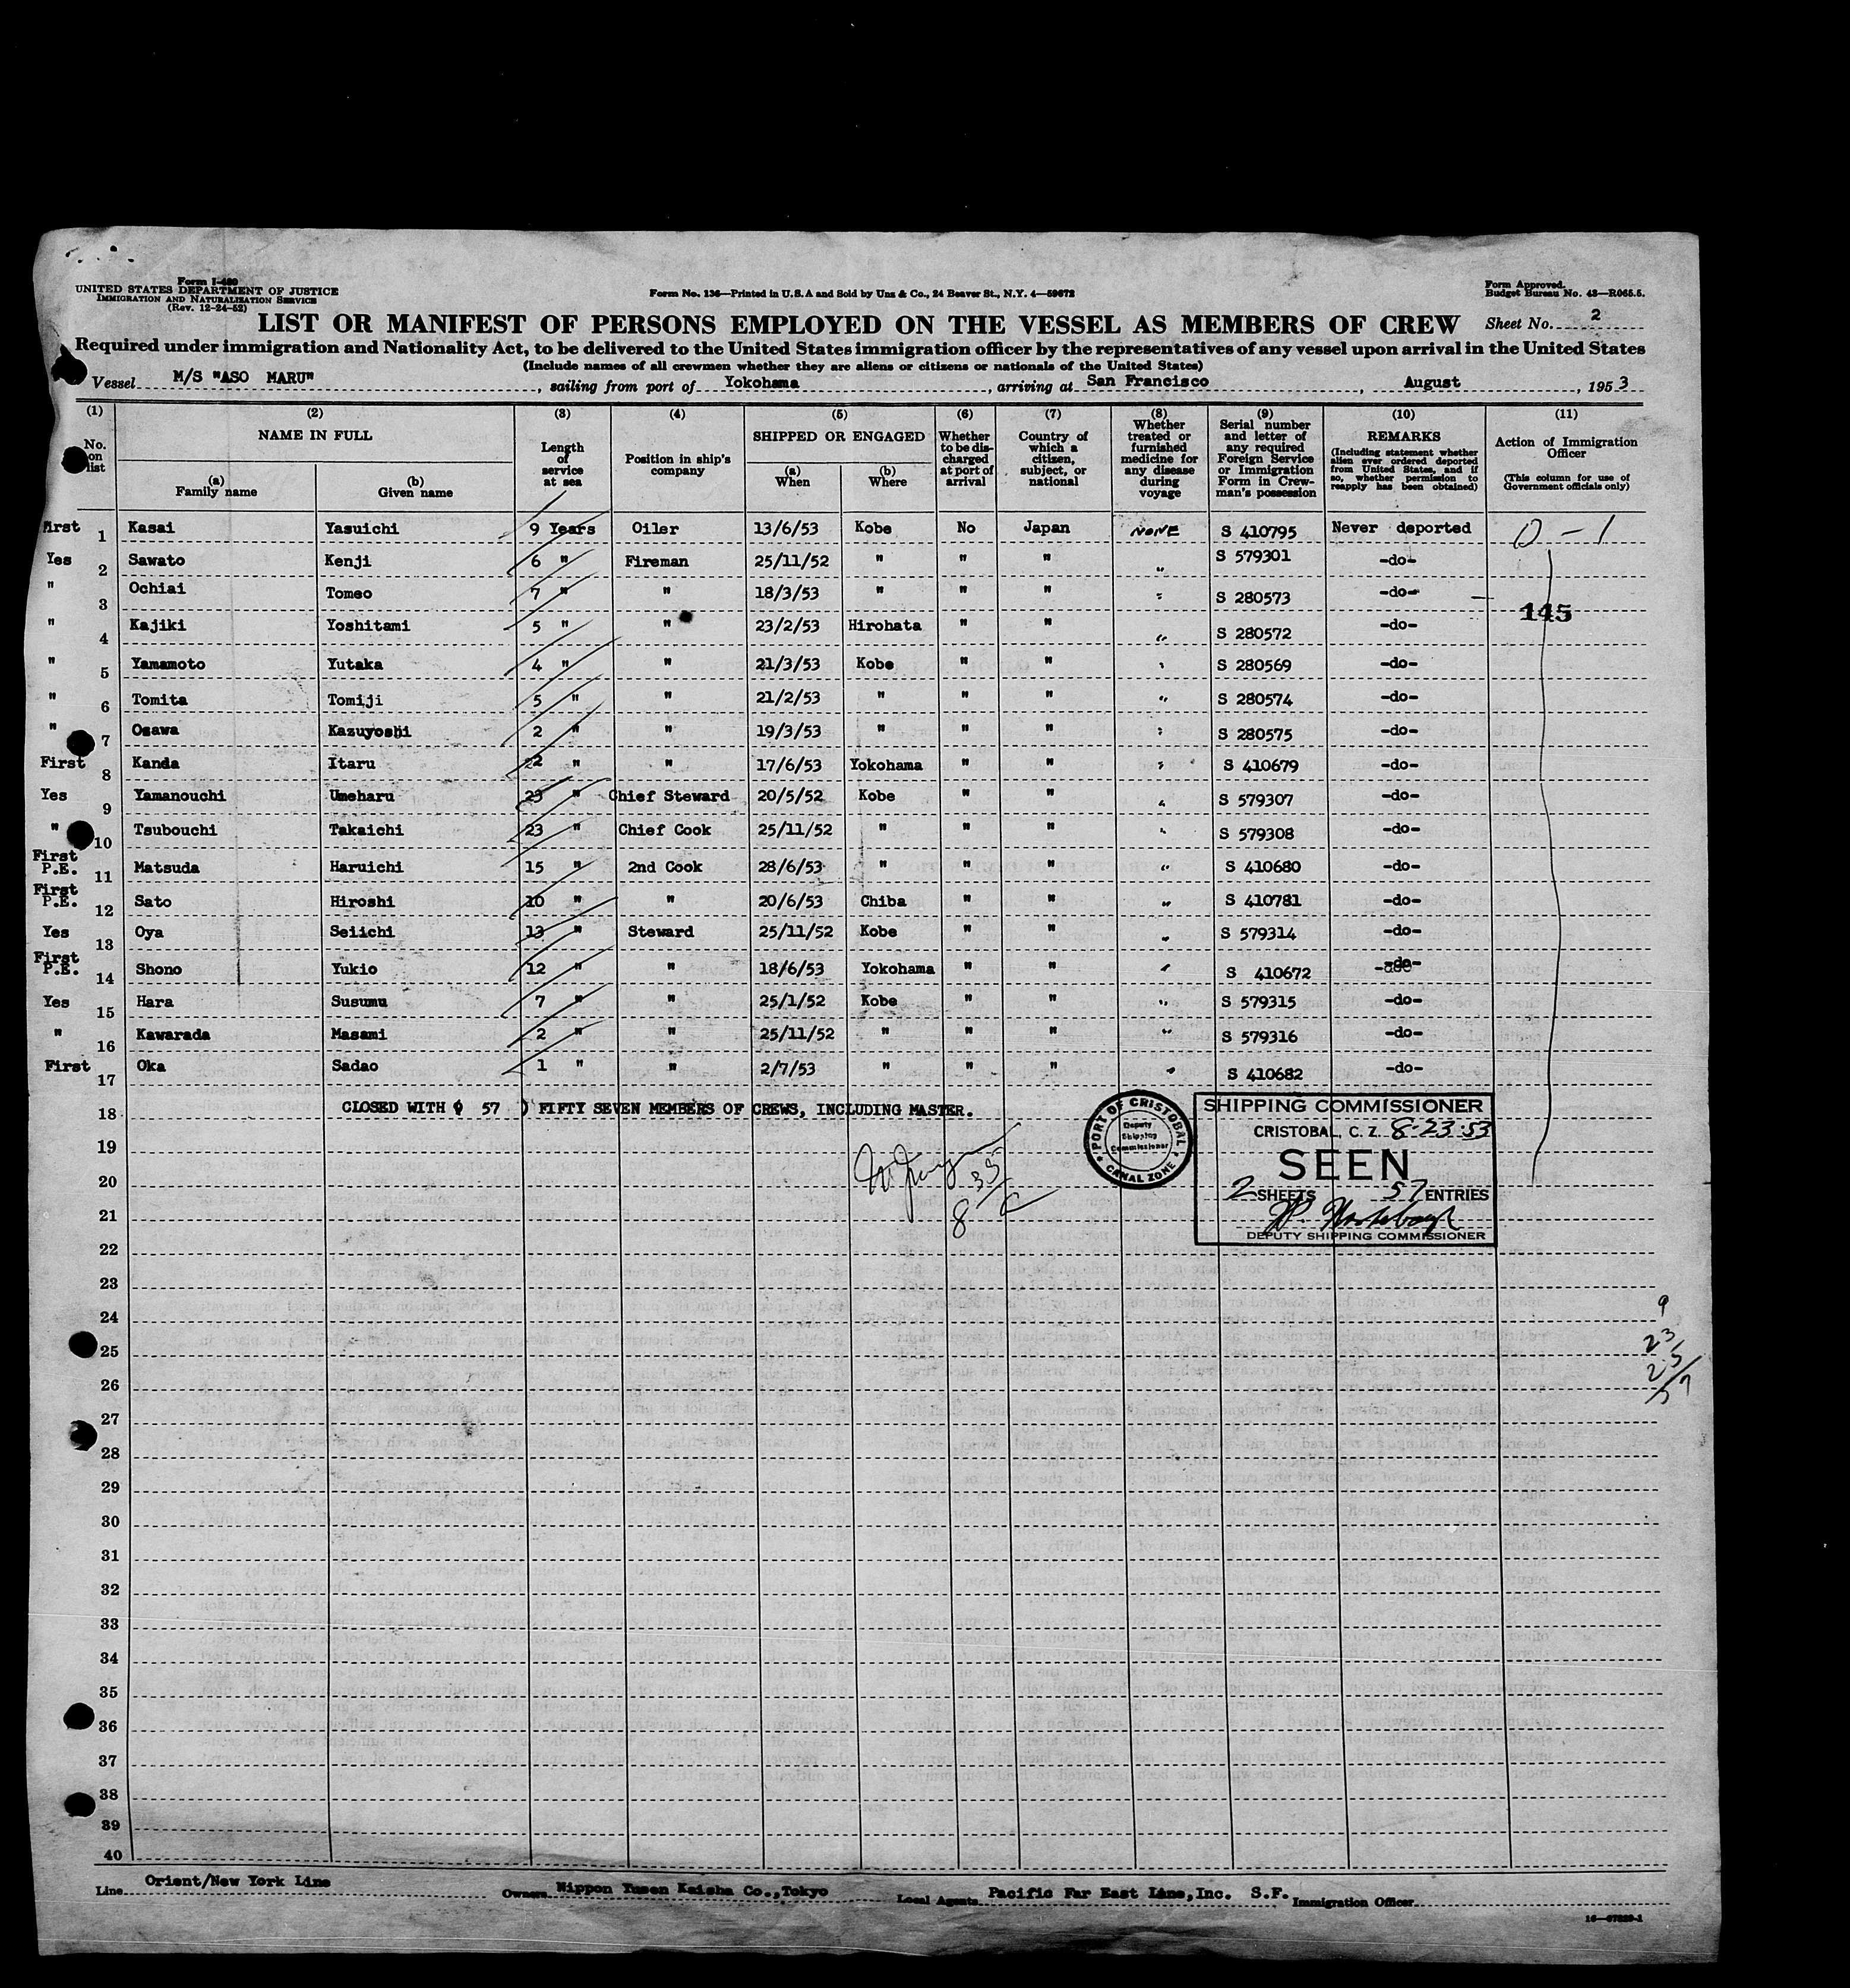 Form I-480
UNITED STATES DEPARTMENT OF JUSTICE
IMMIGRATION AND NATURALIZATION SERVICE
(Rev. 12-24-52)
Form No. 136—Printed in U.S.A and Sold by Unz & Co., 24 Beaver St., N.Y. 4—59672
Form Approved.
Budget Bureau No. 43—R065.5.
LIST OR MANIFEST OF PERSONS EMPLOYED ON THE VESSEL AS MEMBERS OF CREW
Sheet No. 2
Required under immigration and Nationality Act, to be delivered to the United States immigration officer by the representatives of any vessel upon arrival in the United States
(Include names of all crewmen whether they are aliens or citizens or nationals of the United States)
Vessel M/S "ASO MARU", sailing from port of Yokohama, arriving at San Francisco, August, 1953
(1) No. on list
(2) NAME IN FULL (a) Family name (b) Given name
(3) Length of service at sea
(4) Position in ship's company
(5) SHIPPED OR ENGAGED (a) When (b) Where
(6) Whether to be discharged at port of arrival
(7) Country of which a citizen, subject, or national
(8) Whether treated or furnished medicine for any disease during voyage
(9) Serial number and letter of any required Foreign Service or Immigration Form in Crewman's possession
(10) REMARKS (Including statement whether alien ever ordered deported from United States, and if so, whether permission to reapply has been obtained)
(11) Action of Immigration Officer (This column for use of Government officials only)
First 1 Kasai Yasuichi 9 Years Oiler 13/6/53 Kobe No Japan NONE S 410795 Never deported 0-1
Yes 2 Sawato Kenji 6 " Fireman 25/11/52 " " " " S 579301 -do-
" 3 Ochiai Tomeo 7 " " 18/3/53 " " " " S 280573 -do-
145
" 4 Kajiki Yoshitami 5 " " 23/2/53 Hirohata " " " S 280572 -do-
" 5 Yamamoto Yutaka 4 " " 21/3/53 Kobe " " " S 280569 -do-
" 6 Tomita Tomiji 5 " " 21/2/53 " " " " S 280574 -do-
" 7 Osawa Kazuyoshi 2 " " 19/3/53 " " " " S 280575 -do-
First 8 Kanda Itaru 22 " " 17/6/53 Yokohama " " " S 410679 -do-
Yes 9 Yamanouchi Umeharu 23 " Chief Steward 20/5/52 Kobe " " " S 579307 -do-
" 10 Tsubouchi Takaichi 23 " Chief Cook 25/11/52 " " " " S 579308 -do-
First P.E. 11 Matsuda Haruichi 15 " 2nd Cook 28/6/53 " " " " S 410680 -do-
First P.E. 12 Sato Hiroshi 10 " " 20/6/53 Chiba " " " S 410781 -do-
Yes 13 Oya Seiichi 13 " Steward 25/11/52 Kobe " " " S 579314 -do-
First P.E. 14 Shono Yukio 12 " " 18/6/53 Yokohama " " " S 410672 -do-
Yes 15 Hara Susumu 7 " " 25/1/52 Kobe " " " S 579315 -do-
" 16 Kawarada Masami 2 " " 25/11/52 " " " " S 579316 -do-
First 17 Oka Sadao 1 " " 2/7/53 " " " " S 410682 -do-
18 CLOSED WITH ( 57 ) FIFTY SEVEN MEMBERS OF CREWS, INCLUDING MASTER.
PORT OF CRISTOBAL
Deputy
Shipping
Commissioner
CANAL ZONE
SHIPPING COMMISSIONER
CRISTOBAL, C. Z. 8-23-53
SEEN
2 SHEETS 57 ENTRIES
DEPUTY SHIPPING COMMISSIONER
19
20
21
22
23
24
25
26
27
28
29
30
31
32
33
34
35
36
37
38
39
40
9
23
25
57
Line Orient/New York Line Owners Nippon Yusen Kaisha Co.,Tokyo Local Agents Pacific Far East Line,Inc. S.F. Immigration Officer